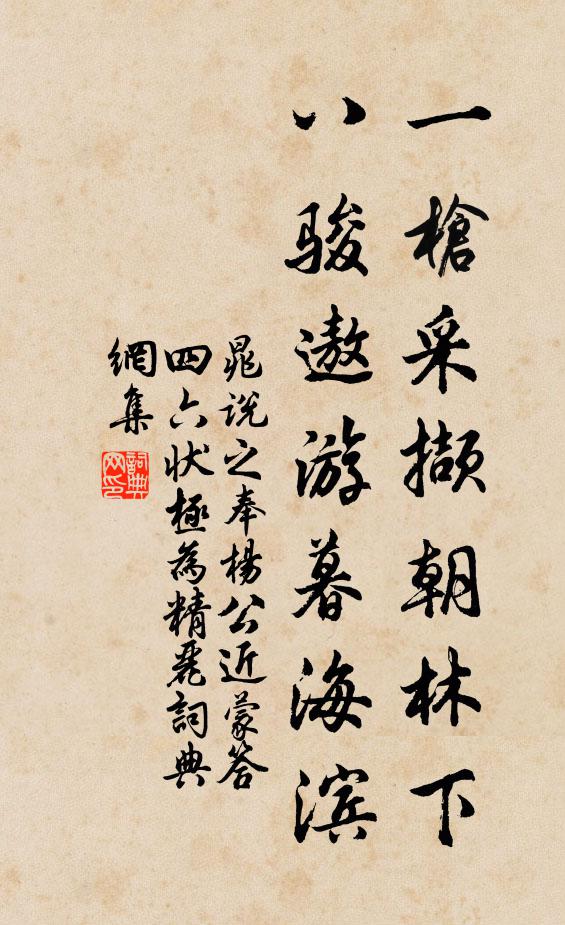 一槍采擷朝林下
八骏遨游暮海滨
晁说之奉楊公近蒙答
四六状極為精麗詞典
網集
詞典网印